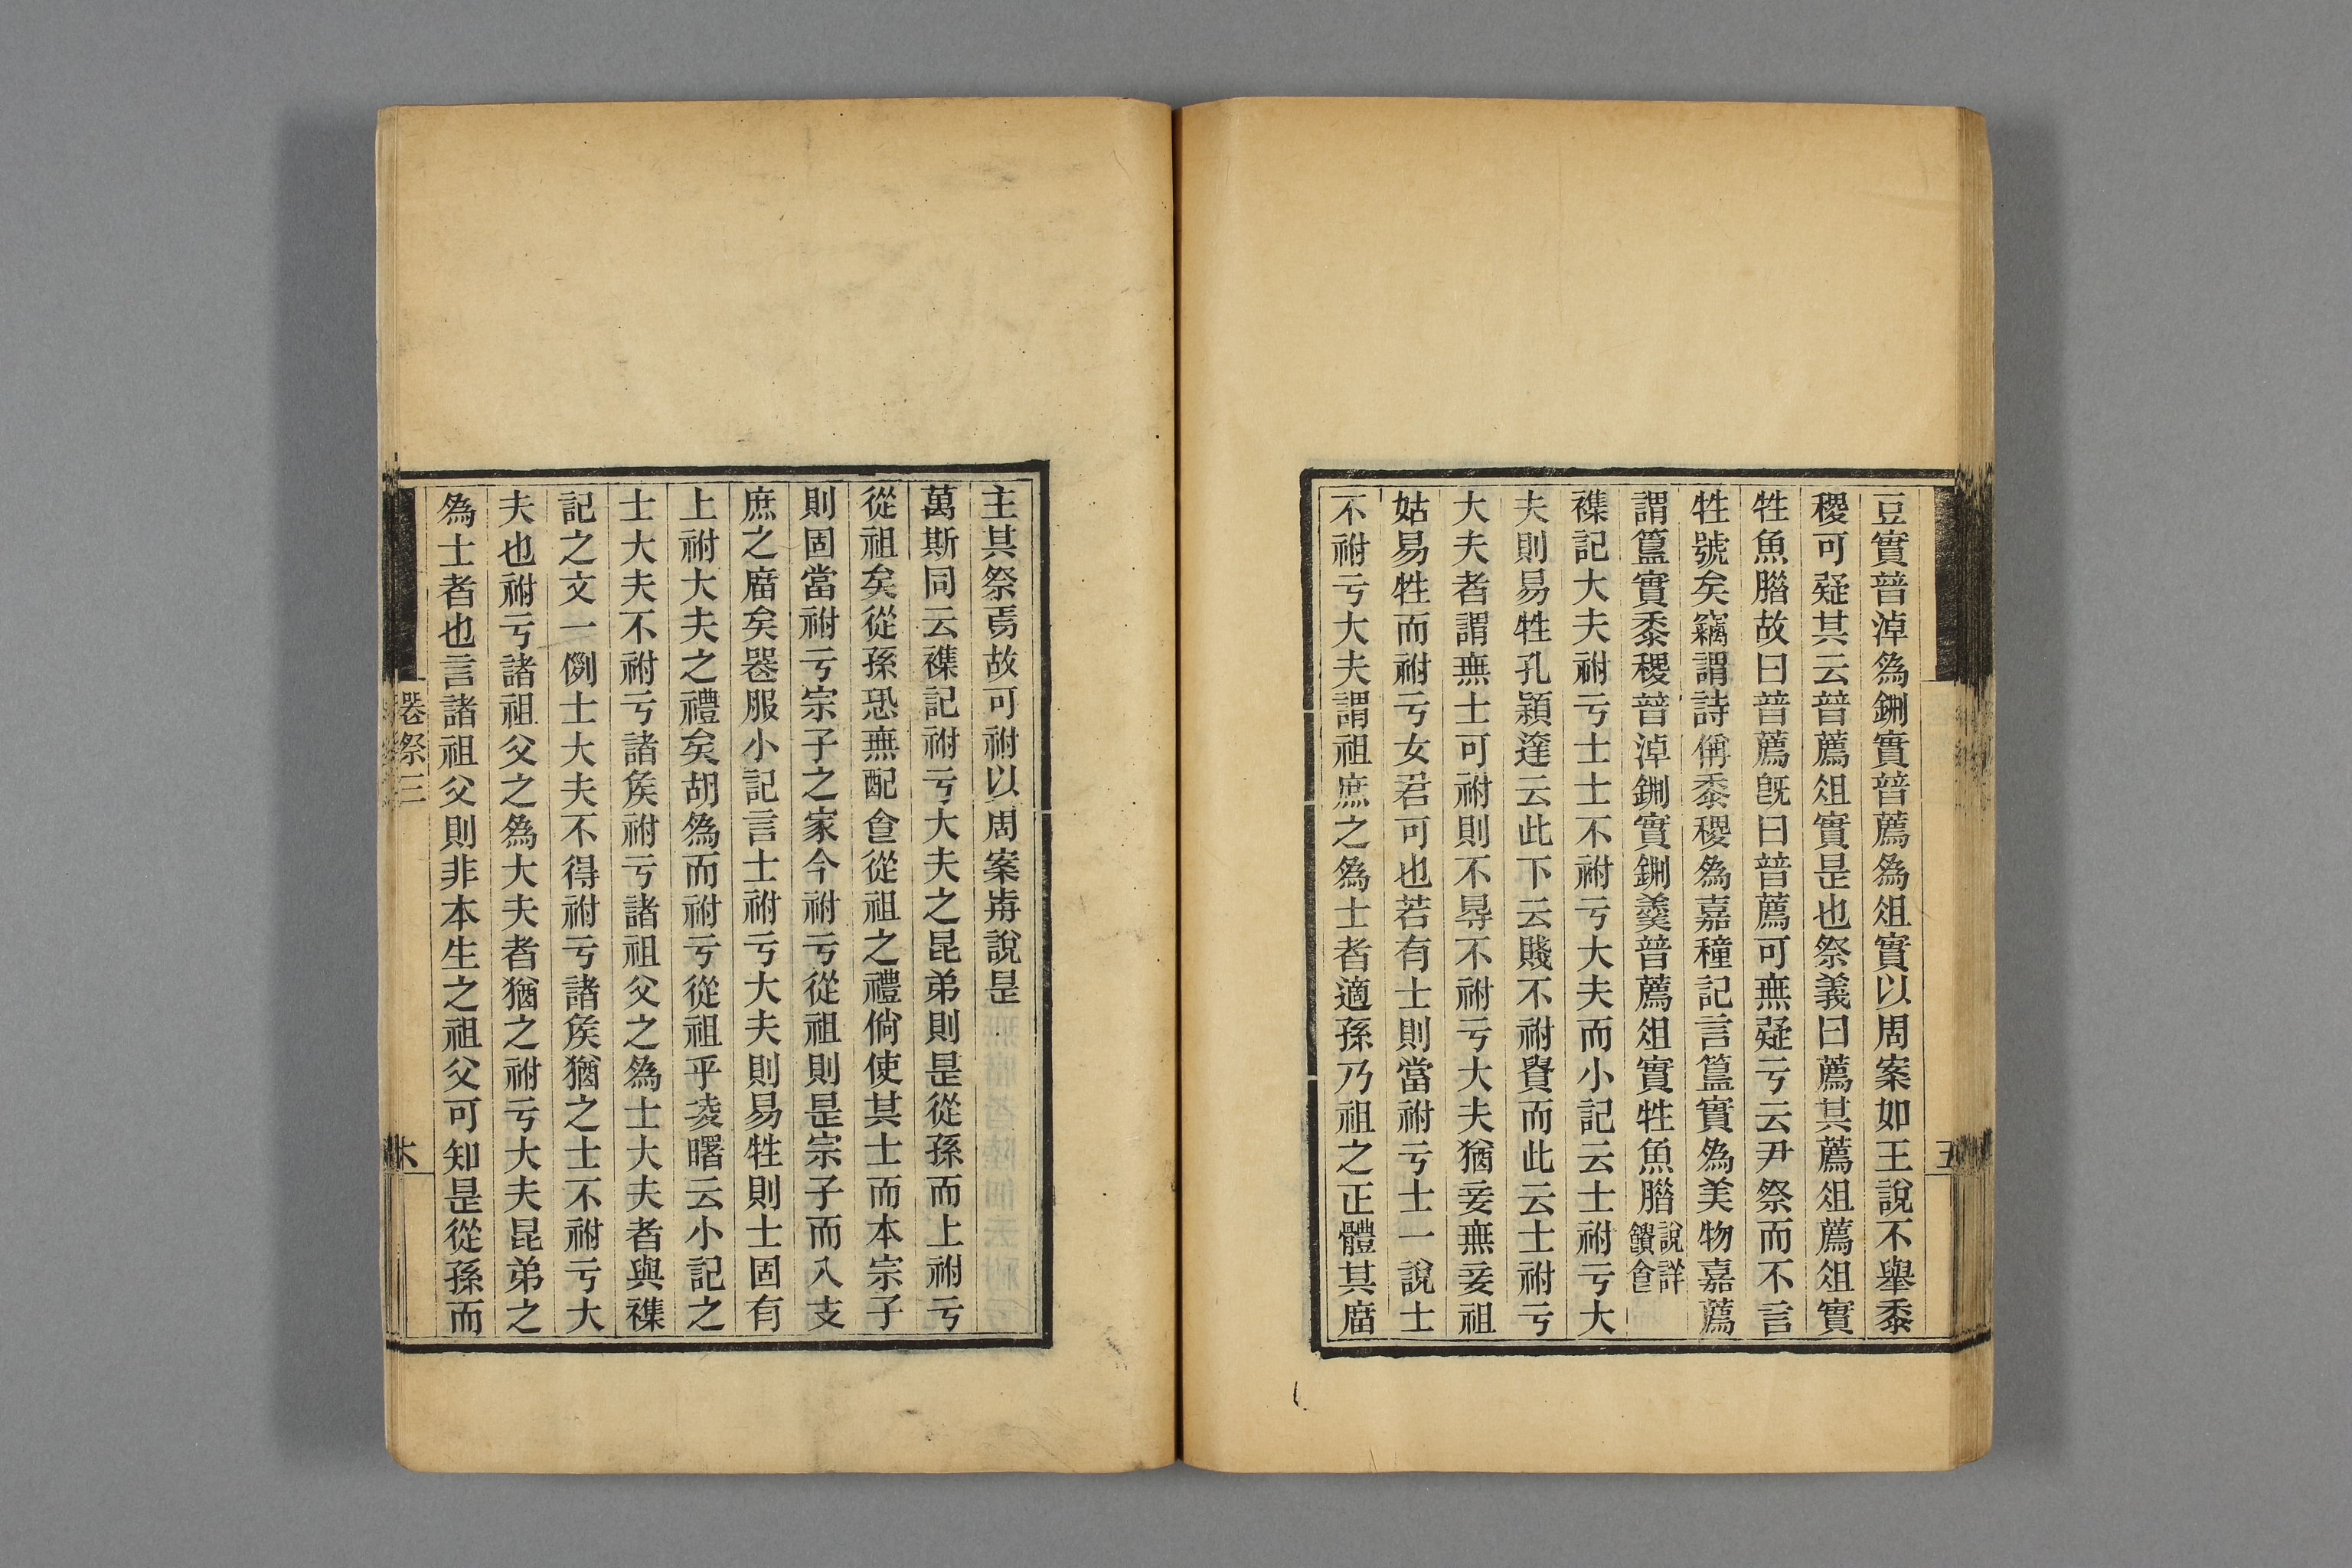 豆實普淖爲鉶實普薦爲俎實以周案如王說不舉黍
稷可疑其云普薦俎實是也祭義曰薦其薦俎薦俎實
牲魚腊故曰普薦旣曰普薦可無疑亏云尹祭而不言
牲號矣竊謂詩偁黍稷爲嘉穜記言簋實爲美物嘉薦
謂簋實黍稷普淖鉶實鉶羹普薦俎實牲魚腊說詳饋食
襍記大夫祔亏士士不祔亏大夫而小記云士祔亏大
夫則易牲孔穎達云此下云賤不祔貴而此云士祔亏
大夫者謂無士可祔則不㝵不祔亏大夫猶妾無妾祖
姑易牲而祔亏女君可也若有士則當祔亏士一說士
不祔亏大夫謂祖庶之爲士者適孫乃祖之正體其庿
五
主其祭焉故可祔以周案歬說是
萬斯同云襍記祔亏大夫之昆弟則是從孫而上祔亏
從祖矣從孫恐無配食從祖之禮倘使其士而本宗子
則固當祔亏宗子之家今祔亏從祖則是宗子而入支
庶之庿矣喪服小記言士祔亏大夫則易牲則士固有
上祔大夫之禮矣胡爲而祔亏從祖乎凌曙云小記之
士大夫不祔亏諸矦祔亏諸祖父之爲士大夫者與襍
記之文一例士大夫不得祔亏諸矦猶之士不祔亏大
夫也祔亏諸祖父之爲大夫者猶之祔亏大夫昆弟之
爲士者也言諸祖父則非本生之祖父可知是從孫而
喪祭三
六